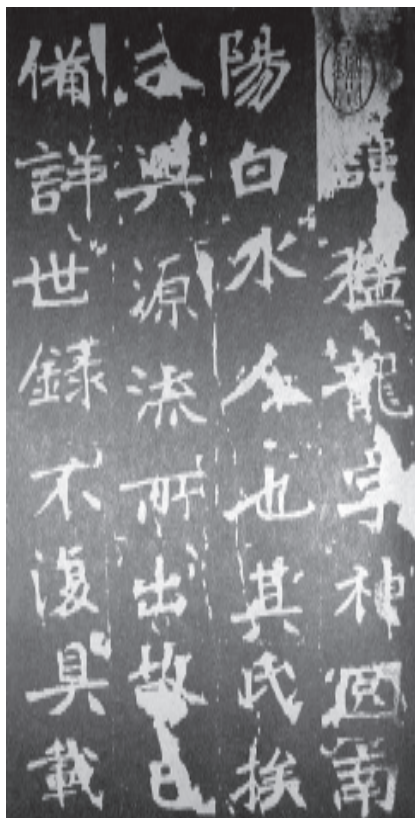 諱猛龍字神囧南
陽白水人也其氏族
分興源流所出故已
備詳世録不復具載